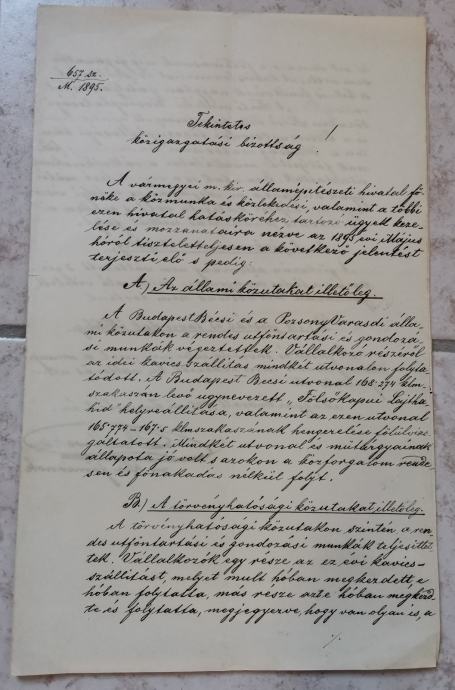 657 sz.
M. 1895.
Tekintetes
közigazgatási bizottság!
A vármegyei m. kir. államépitészeti hivatal fő-
nöke a közmunka és közlekedési, valamint a többi
ezen hivatal hatásköréhez tartozó ügyek keze-
lése és mozzanataira nézve az 1895 évi Május
hóról tiszteletteljesen a következő jelentést
terjeszti elő s pedig:
A.) Az állami közutakat illetőleg.
A Budapest Bécsi és a Pozsony Varasdi álla-
mi közutakon a rendes utfőntartási és gondozá-
si munkák végeztettek. Vállalkozó részéről
az idei kavicsszállitás mindkét utvonalon folyta-
tódott. A Budapest Becsi utvonal 168.274 klm.
szakaszán levő ugynevezett „Fölsőkapui Lajtha
hid" helyreállitása, valamint az ezen utvonal
165.774-167.5 klm szakaszának hengerelése fölülvizs-
gáltatott. Mindkét utvonal és műtárgyainak
állapota jó volt s azokon a közforgalom rende-
sen és fönakadás nélkül folyt.
B.) A törvényhatósági közutakat illetőleg.
A törvényhatósági közutakon szintén a ren-
des utfőntartási és gondozási munkák teljesittet-
tek. Vállalkozók egy része az ez évi kavics-
szállitást, melyet mult hóban megkezdett, e
hóban folytatta, más része azt e hóban megkezd-
te és folytatta, megjegyezve, hogy van olyan is, a
./.